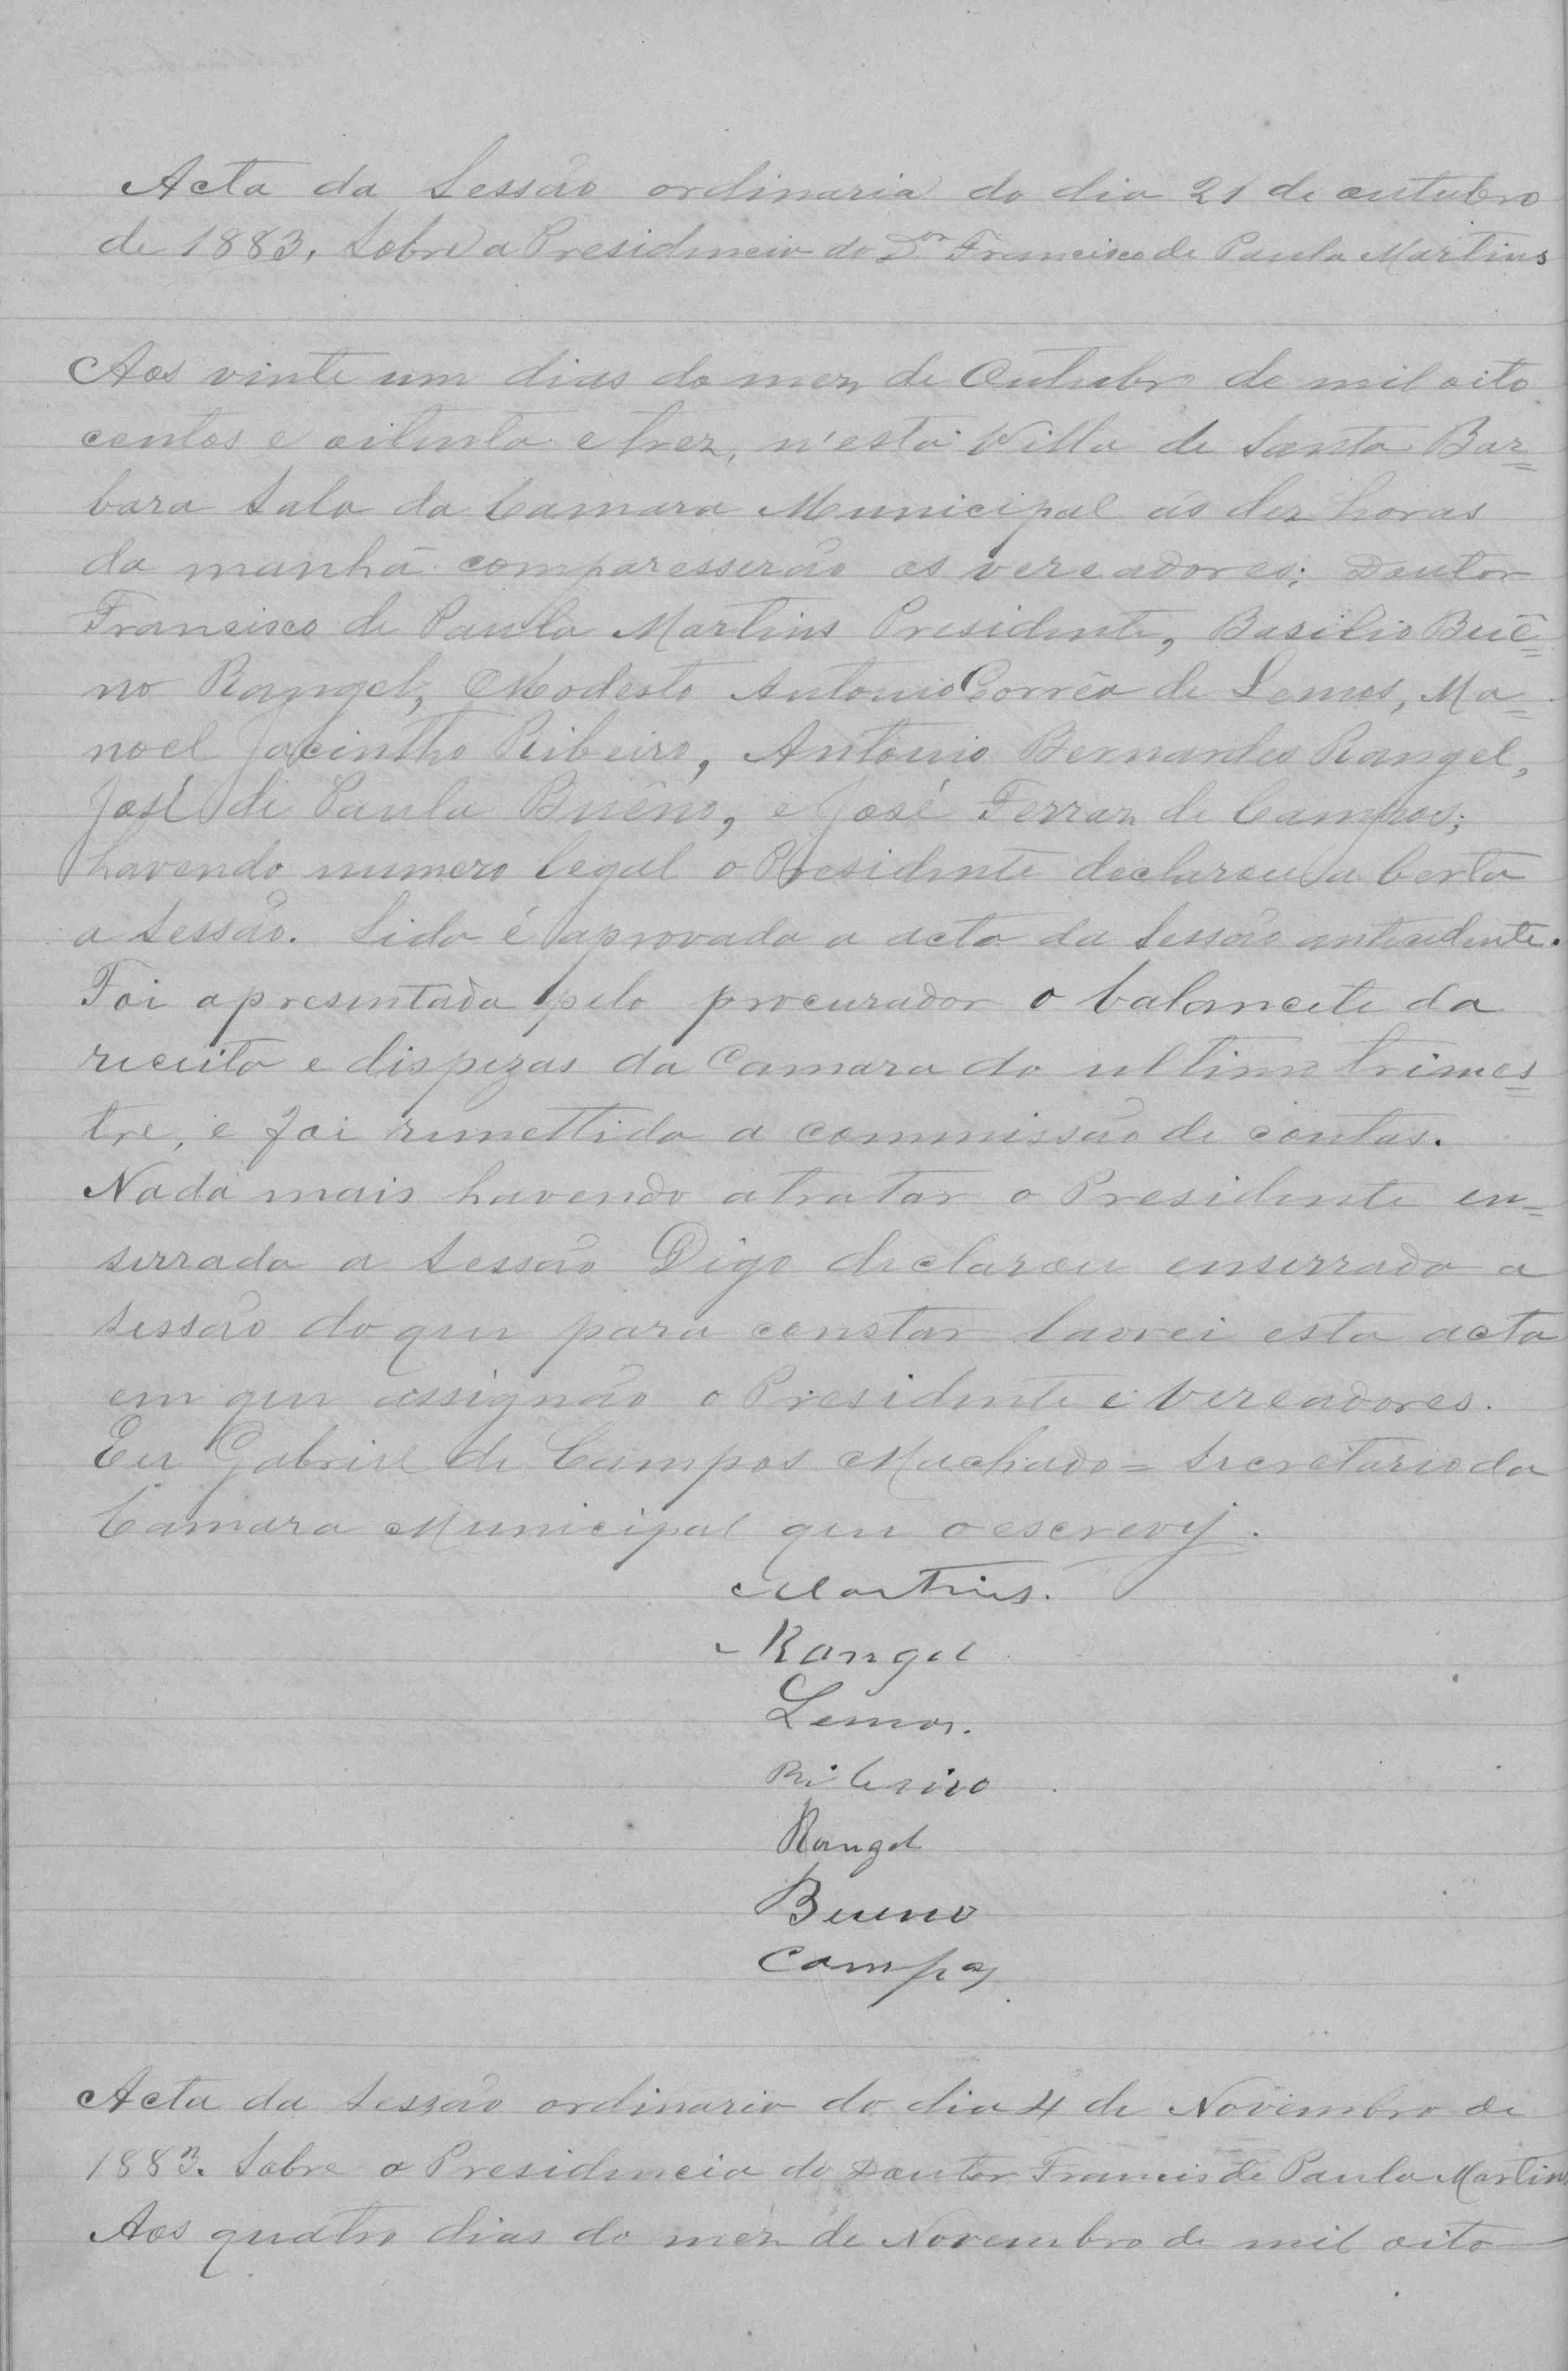 Acta da Sessão ordinaria do dia 21 de outubro
de 1883, Sobre a Presidencia do Dor Francisco de Paula Martins
Aos vinte um dias do mez de Outubro de mil oito
centos e oitenta e trez, n'esta Villa de Santa Bar=
bara Sala da Camara Municipal ás dez horas
da manhã comparesserão os vereadores; Doutor
Francisco de Paula Martins Presidente, Basilio Buê=
no Rangel, Modesto Antonio Corrêa de Lemos, Ma=
noel Jacintho Ribeiro, Antonio Bernardes Rangel,
José de Paula Buêno, e José Ferraz de Campos;
havendo numero legal o Presidente declarou aberta
a Sessão. Lida é aprovada a acta da Sessão antecedente.
Foi apresentada pelo procurador o balancete da
receita e dispezas da Camara do ultimo trimes=
tre, e foi remettida a commissão de contas.
Nada mais havendo a tratar o Presidente en=
serrada a Sessão Digo declarou enserrado a
sessão do que para constar lavrei esta acta
em que assignão o Presidente e vereadores.
Eu Gabriel de Campos Machado = Secretario da
Camara Municipal que o escrevij.
Martins.
Rangel
Lemos.
Ribeiro
Rangel
Bueno
Campos
Acta da Sessão ordinaria do dia 4 de Novembro de
1883. Sobre a Presidencia do Doutor Francis de Paula Martins
Aos quatro dias do mez de Novembro de mil oito